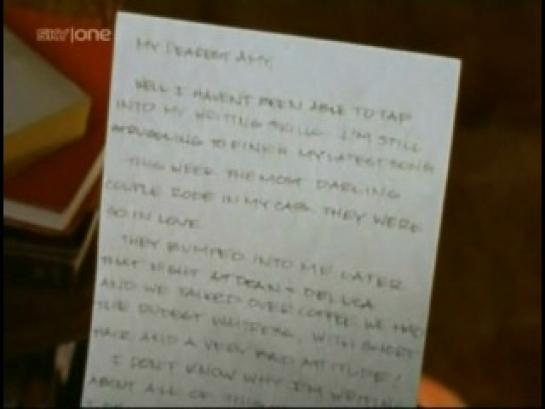 sky one
MY DEAREST AMY,
WELL I HAVEN'T BEEN ABLE TO TAP
INTO MY WRITING SKILLS. I'M STILL
STRUGGLING TO FINISH MY LATEST SONG
THIS WEEK THE MOST DARLING
COUPLE RODE IN MY CAB. THEY WERE
SO IN LOVE.
THEY BUMPED INTO ME LATER
THAT NIGHT AT DEAN & DELUCA
AND WE TALKED OVER COFFEE. WE HAD
THE RUDEST WAITRESS, WITH SHORT
HAIR AND A VERY BAD ATTITUDE!
I DON'T KNOW WHY I'M WRITING
ABOUT ALL OF THIS